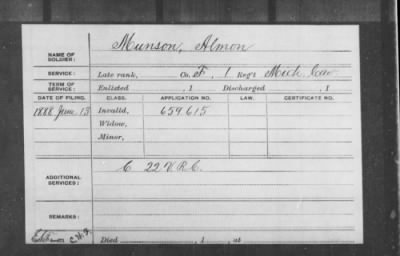 NAME OF SOLDIER: Munson, Almon
SERVICE: Late rank, Co. F, 1 Reg't Mich. Cav
TERM OF SERVICE: Enlisted , 1 Discharged , 1
DATE OF FILING. CLASS. APPLICATION NO. LAW. CERTIFICATE NO.
1888 June 13 Invalid, 659615
Widow,
Minor,
ADDITIONAL SERVICES: C 22 V.R.C.
REMARKS:
Died , 1 , at